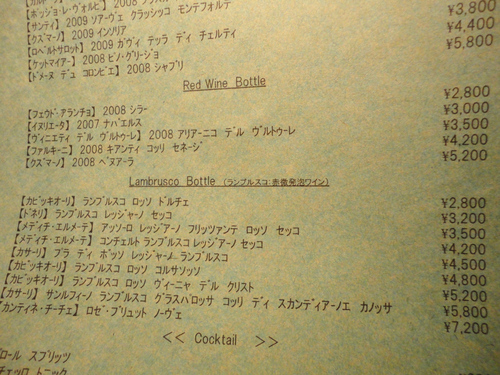 【ボッジョ・レ・ヴォルピ】 2008
【サンティ】 2009 ソアーヴェ クラッシッコ モンテフォルテ ¥3,800
【クズマーノ】 2009 インソリア ¥4,400
【ロベルトサロット】 2009 ガヴィ テッラ ディ チェルティ ¥5,800
【ケットマイアー】 2008 ピノ・グリージョ
【ドメーヌ デュ コロンビエ】 2008 シャブリ
Red Wine Bottle
【フェウド・アランチョ】 2008 シラー ¥2,800
【イヌリエータ】 2007 ナバエルス ¥3,000
【ヴィニエティ デル ヴルトゥーレ】 2008 アリアーニコ デル ヴルトゥーレ ¥3,500
【ファルキーニ】 2008 キアンティ コッリ セネージ ¥4,200
【クズマーノ】 2008 ベヌアーラ ¥5,200
Lambrusco Bottle （ランブルスコ：赤微発泡ワイン）
【カビッキオーリ】 ランブルスコ ロッソ ドルチェ ¥2,800
【ドネリ】 ランブルスコ レッジャーノ セッコ ¥3,200
【メディチ・エルメーテ】 アッソーロ レッジアーノ フリッツァンテ ロッソ セッコ ¥3,500
【メディチ・エルメーテ】 コンチェルト ランブルスコ レッジアーノ セッコ ¥4,200
【カサーリ】 プラ ディ ボッソ レッジャーノ ランブルスコ ¥4,500
【カビッキオーリ】 ランブルスコ ロッソ コルサソッソ ¥4,800
【カビッキオーリ】 ランブルスコ ロッソ ヴィーニャ デル クリスト ¥5,200
【カサーリ】 サンルフィーノ ランブルスコ グラスパロッサ コッリ ディ スカンディアーノエ カノッサ ¥5,800
【カンティネ・チーチェ】 ロゼ・ブリュット ノーヴェ ¥7,200
<< Cocktail >>
ロール スプリッツ
チェッロ トニック